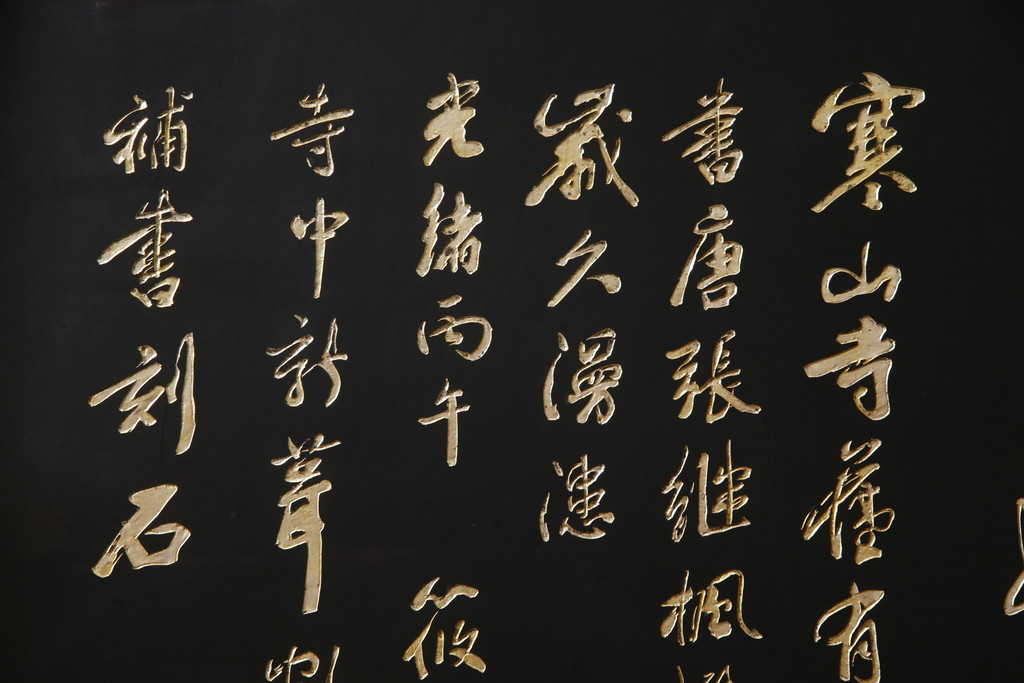 寒山寺舊有
書唐張繼楓
歲久漫漶
光緒丙午 筱
寺中新葺
補書刻石